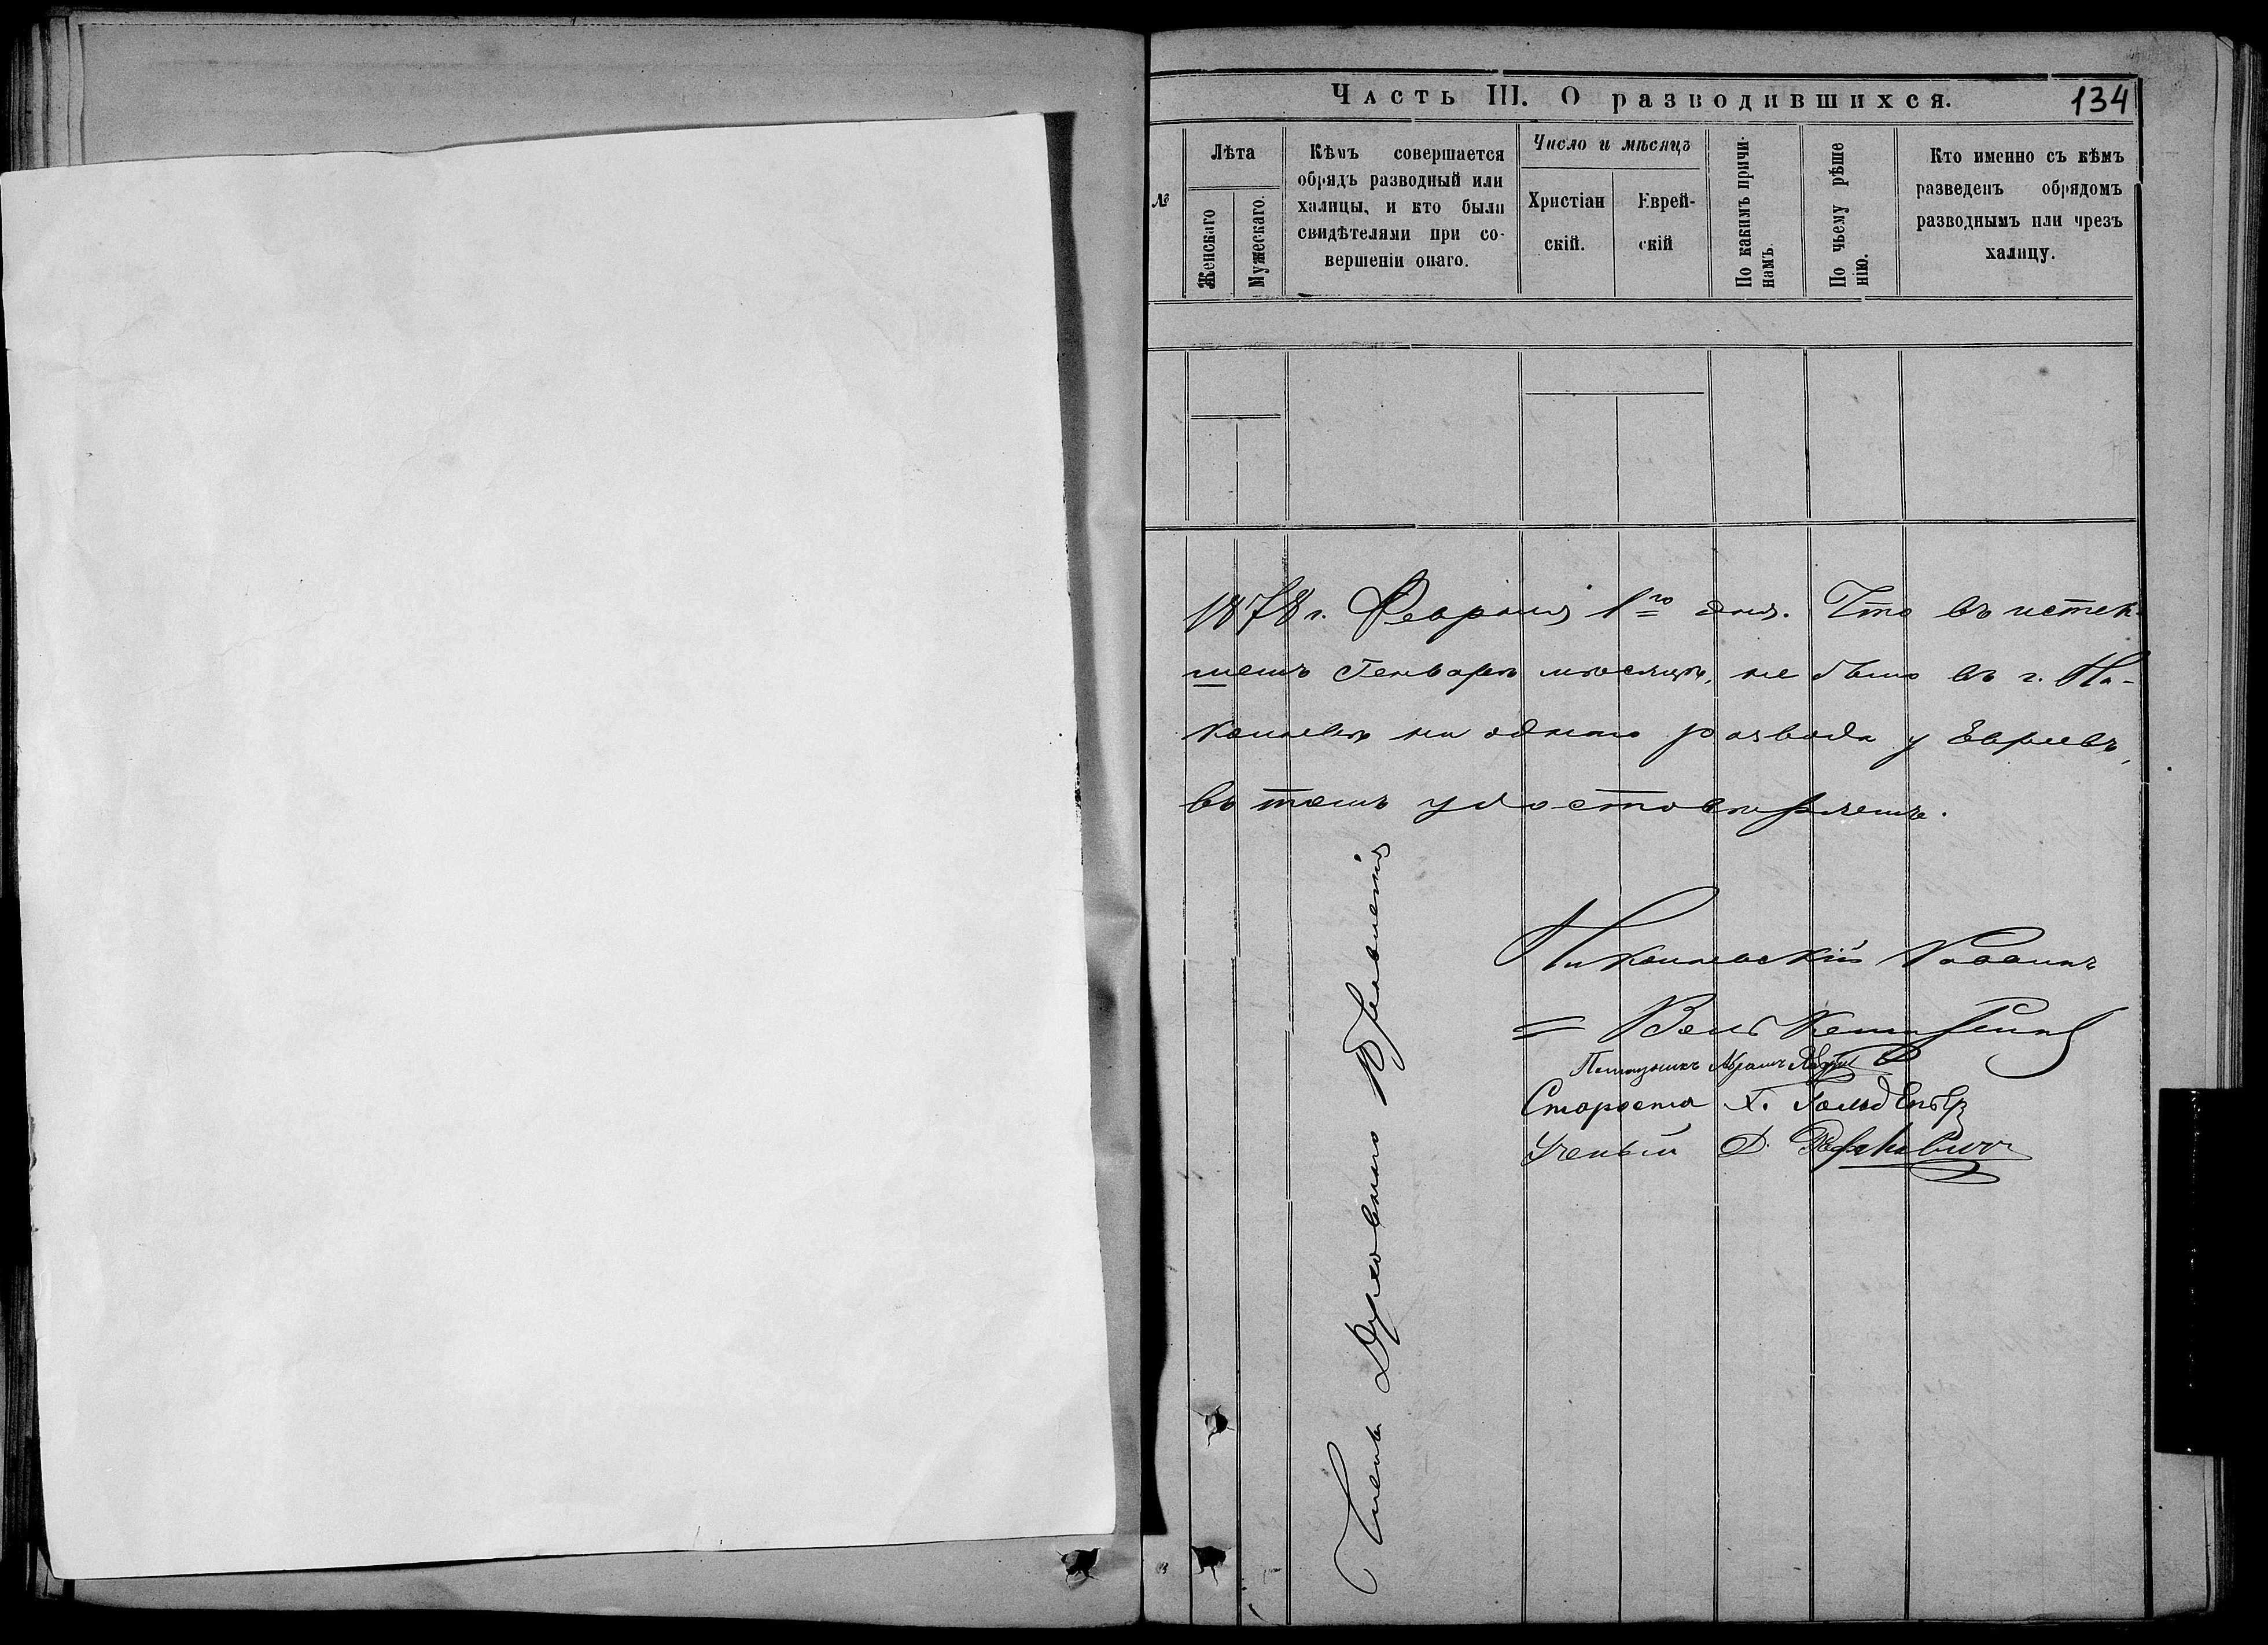 Часть III. О разводившихся.
134
№
Лѣта
Женскаго
Мужескаго.
Кѣмъ совершается
обрядъ разводный или
халицы, и кто были
свидѣтелями при со-
вершеніи онаго.
Число и мѣсяцъ
Христіан
скій.
Еврей-
скій
По какимъ причи-
намъ.
По чьему рѣше
нію.
Кто именно съ кѣмъ
разведенъ обрядомъ
разводнымъ или чрезъ
халицу.
1878 г. Февраля 1го дня. Что въ истек-
шемъ Генварѣ мѣсяцѣ, не было въ г. Ни-
колаевѣ ни одного развода у Евреевъ,
въ томъ удостовѣряемъ.
Николаевскій Раввинъ
Члены Духовнаго Правленія
Староста Х. Гольденбер
Ученый